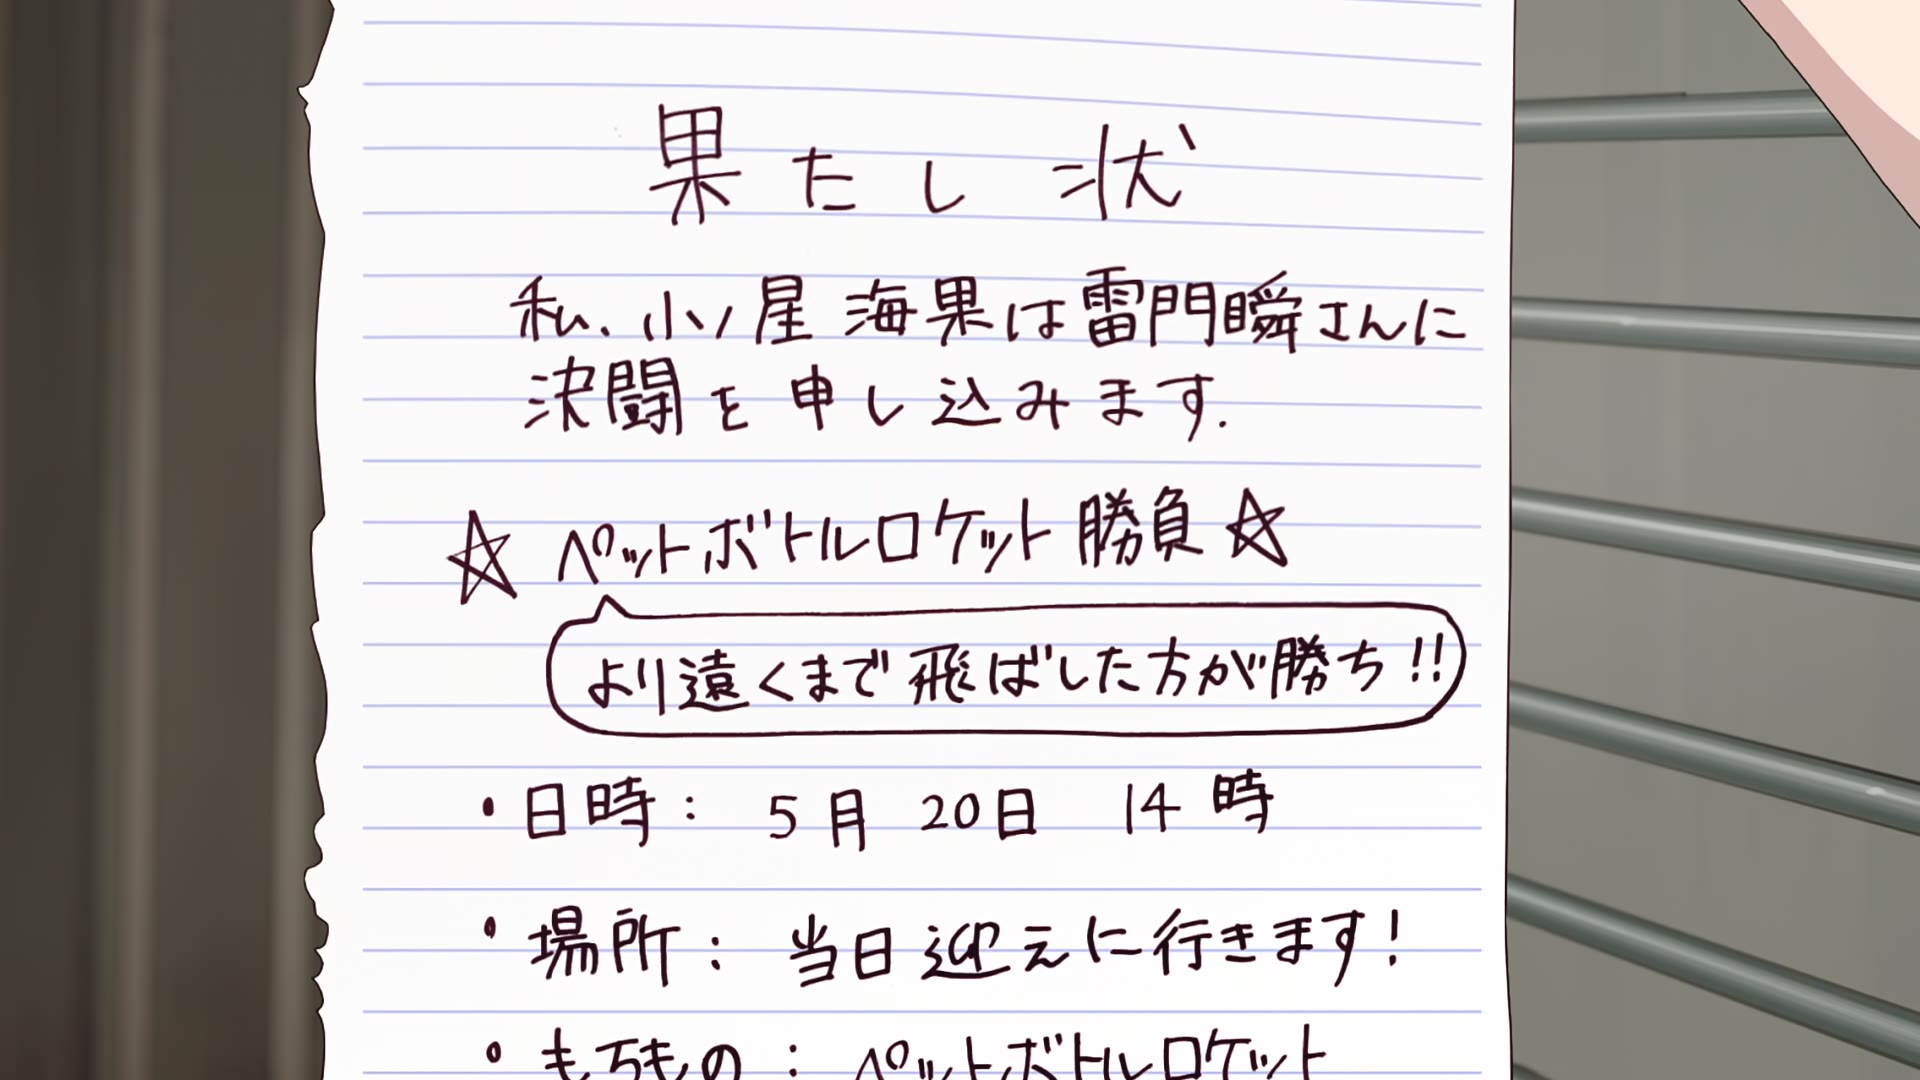 果たし状
私、小ノ星 海果は雷門瞬さんに
決闘を申し込みます.
☆ ペットボトルロケット勝負 ☆
より遠くまで飛ばした方が勝ち!!
・日時: 5月 20日 14時
・場所: 当日迎えに行きます!
・もちもの: ペットボトルロケット